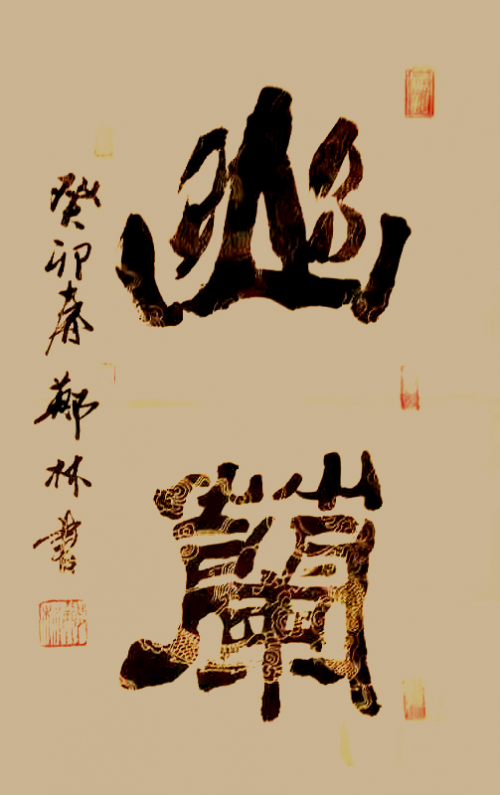 幽蘭
癸卯春 鄭林書